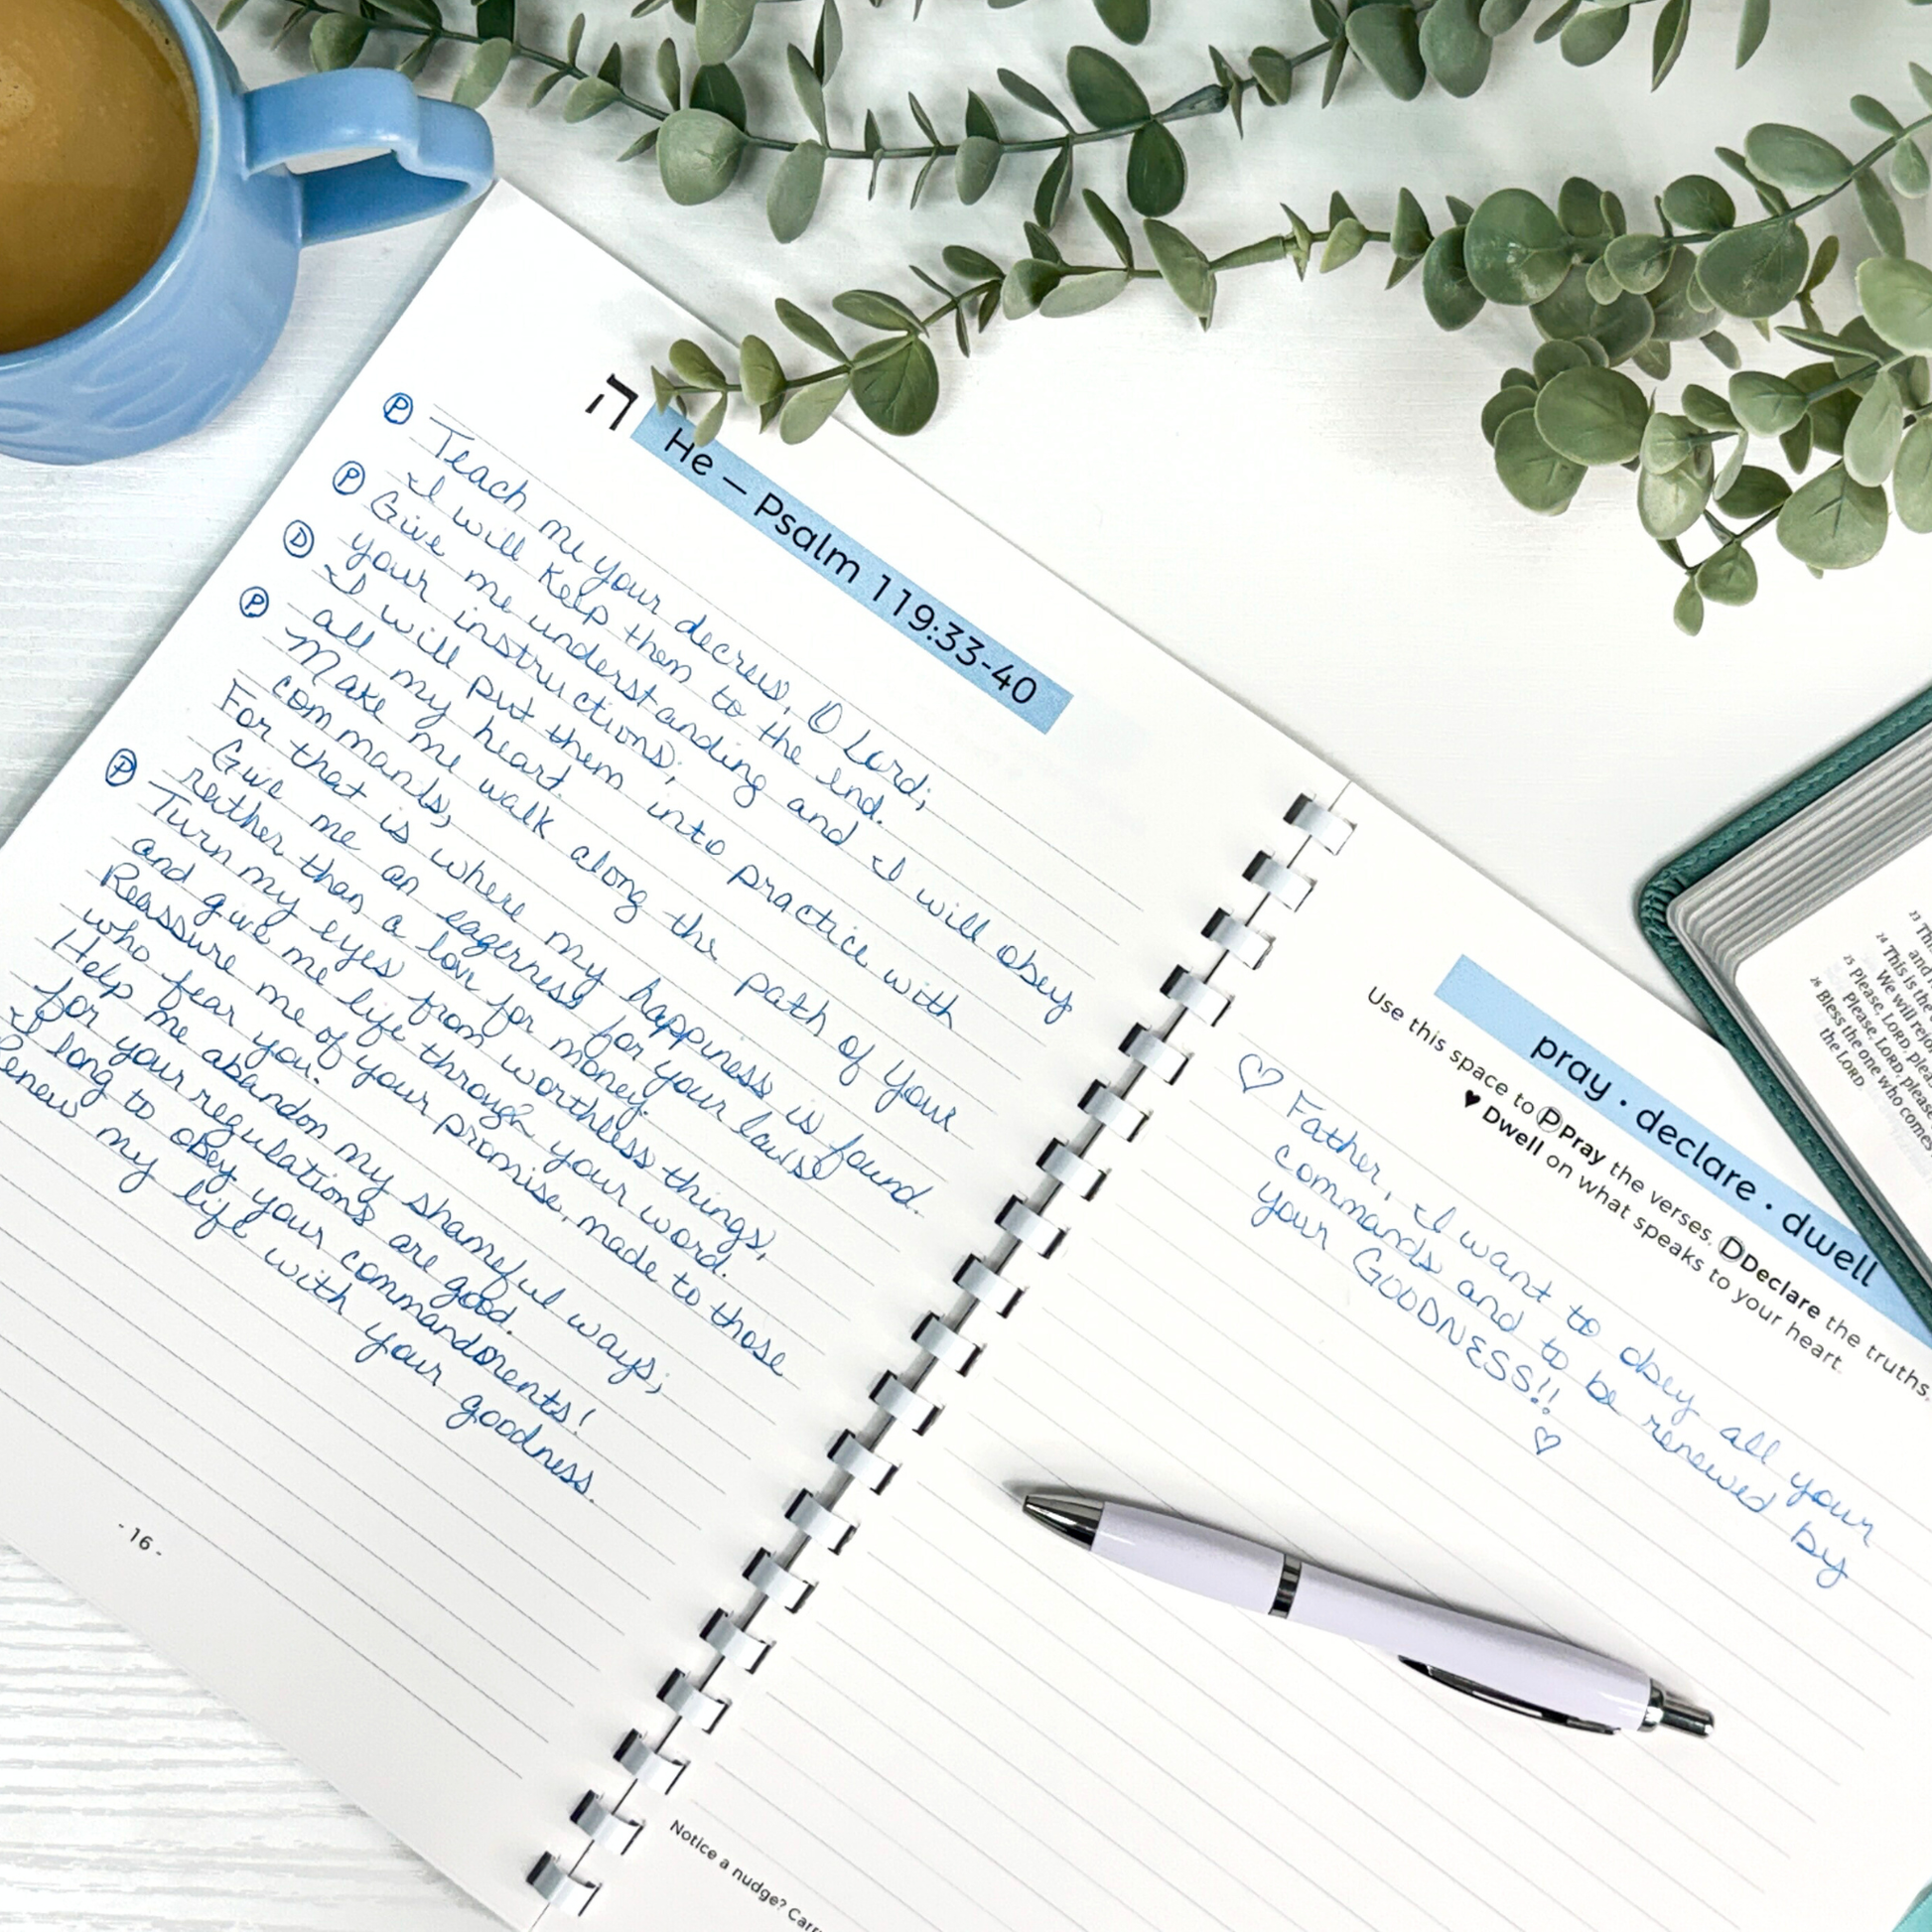 ה He – Psalm 119:33-40
Ⓟ Teach me your decrees, O Lord;
I will keep them to the end.
Ⓟ Give me understanding and I will obey
your instructions;
Ⓓ I will put them into practice with
all my heart.
Ⓟ Make me walk along the path of your
commands,
For that is where my happiness is found.
Give me an eagerness for your laws
rather than a love for money.
Ⓟ Turn my eyes from worthless things,
and give me life through your word.
Reassure me of your promise, made to those
who fear you.
Help me abandon my shameful ways;
for your regulations are good.
I long to obey your commandments!
Renew my life with your goodness.
- 16 -
pray · declare · dwell
Use this space to Ⓟ Pray the verses. Ⓓ Declare the truths.
♥ Dwell on what speaks to your heart.
♡ Father, I want to obey all your
commands and to be renewed by
your GOODNESS!!
♡
Notice a nudge?
23
and
24 This is the
We will rejoi
25 Please, LORD, pleas
Please, LORD, please
26 Bless the one who comes
the LORD